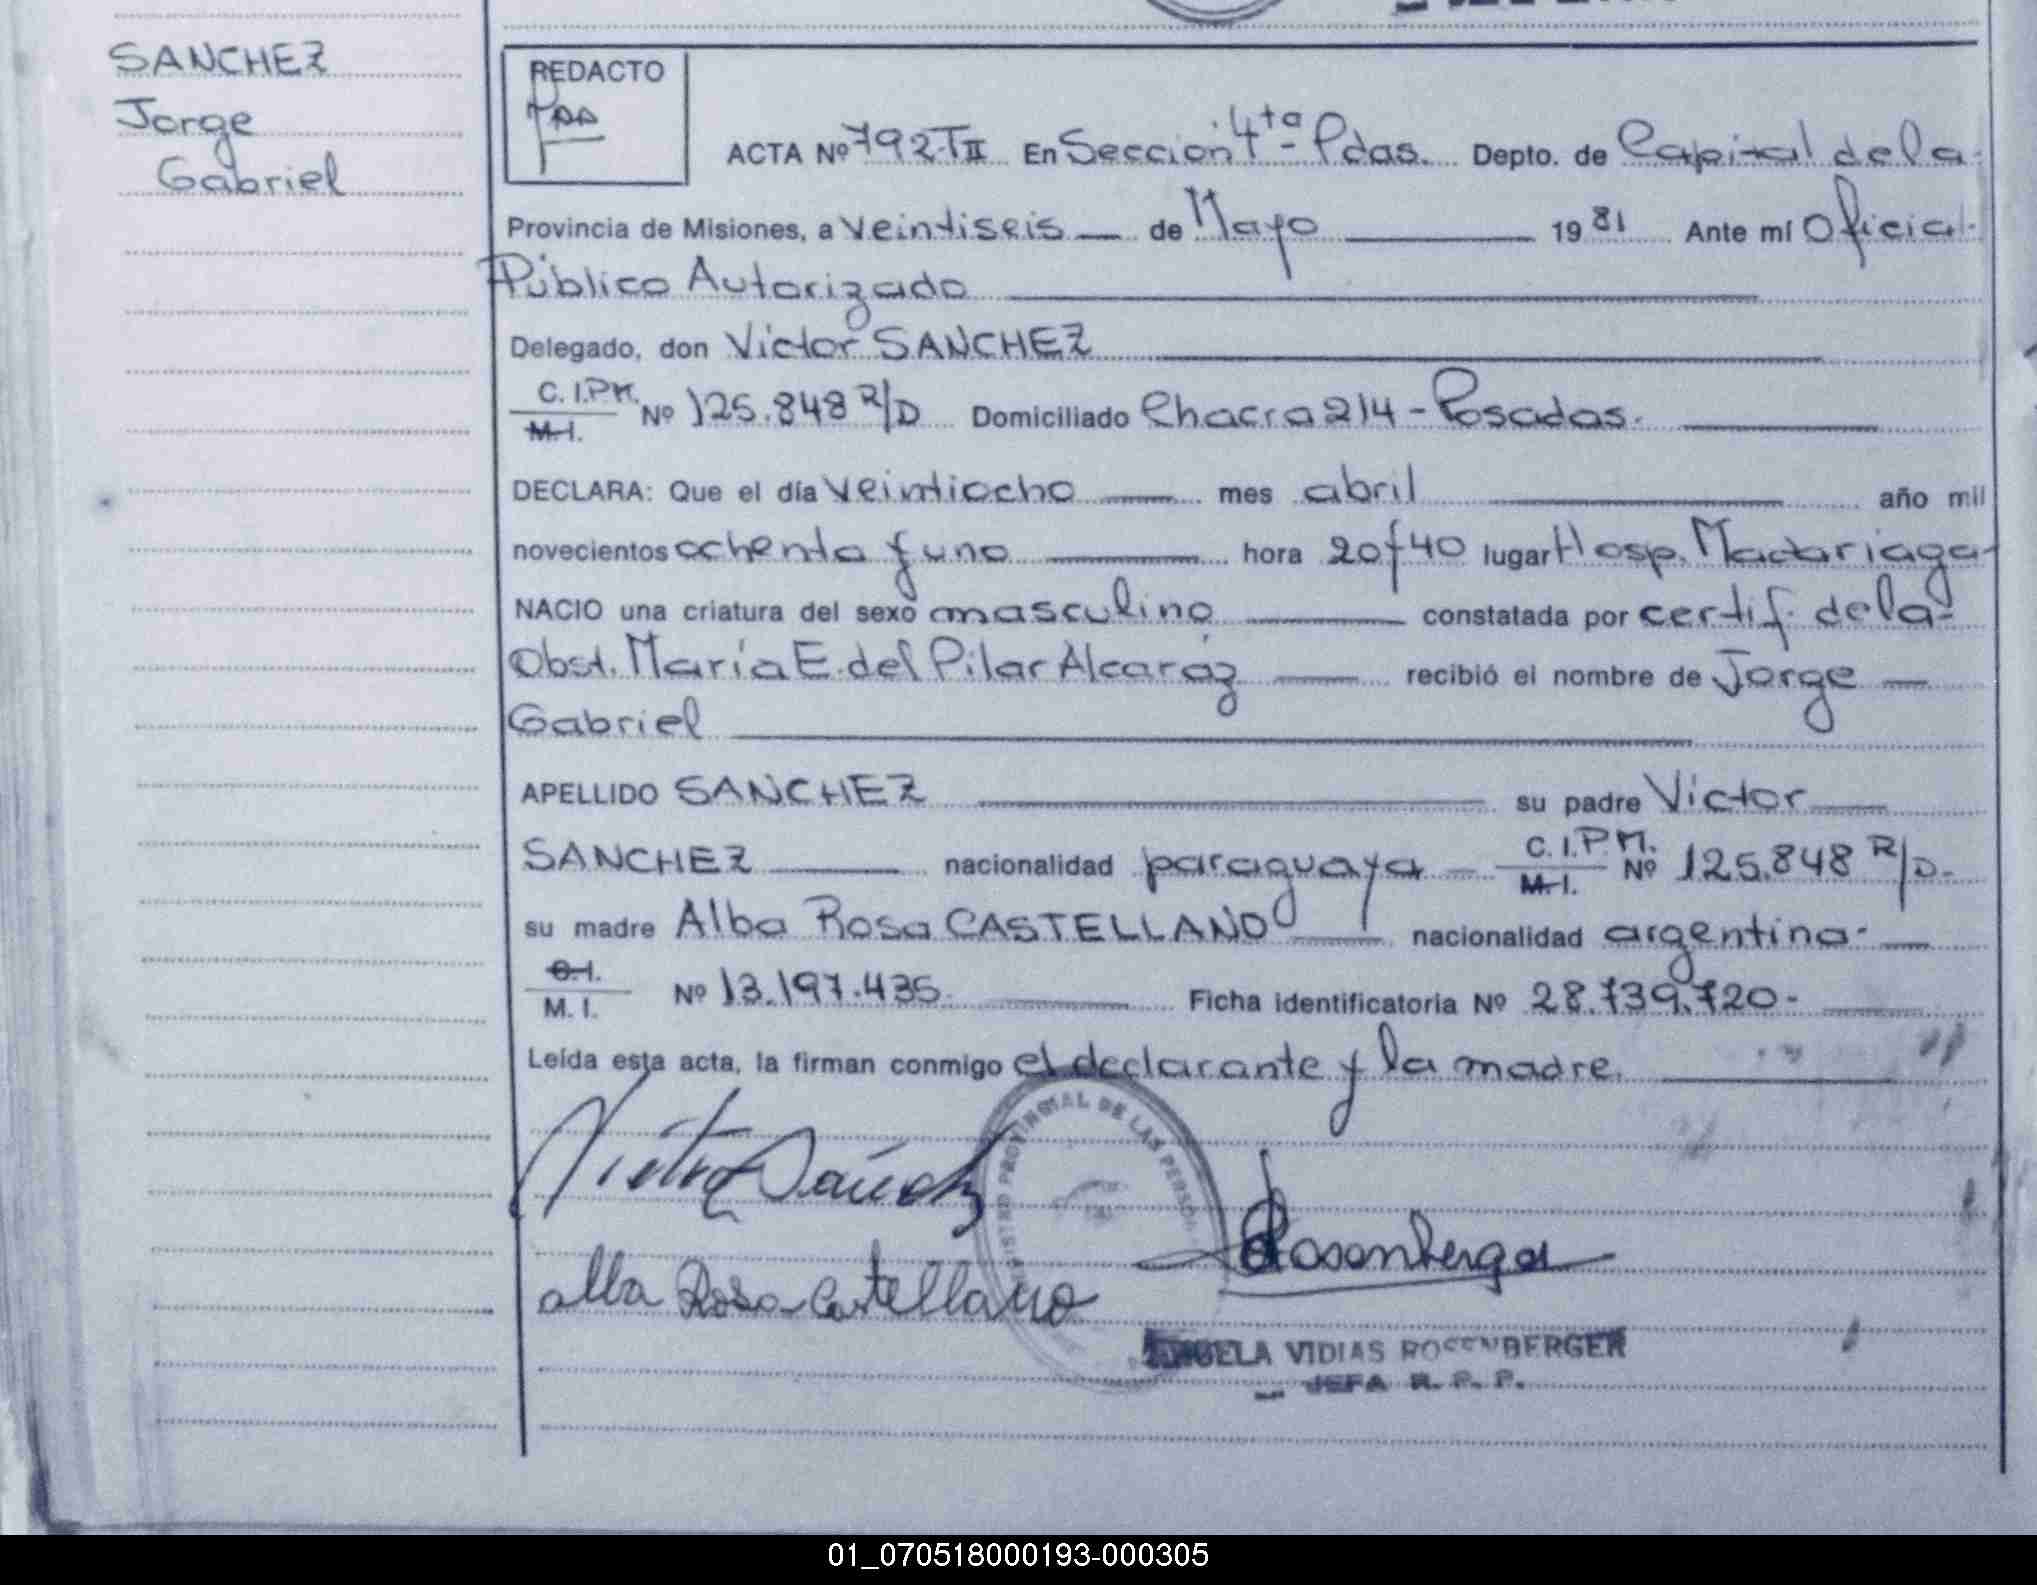 SANCHEZ
Jorge
Gabriel
REDACTO
ACTA Nº 792.TII En Sección 4ta- Pdas. Depto. de Capital de la-
Provincia de Misiones, a veintiseis de Mayo 1981 Ante mí Oficial-
Público Autorizado
Delegado, don Victor SANCHEZ
C.I.P.M.
M.I. Nº 125.848 R/D Domiciliado Chacra 214 - Posadas.
DECLARA: Que el día veintiocho mes abril año mil
novecientos ochenta y uno hora 20 y 40 lugar Hosp. Madariaga-
NACIO una criatura del sexo masculino constatada por certif. de la-
Obst. María E. del Pilar Alcaráz recibió el nombre de Jorge
Gabriel
APELLIDO SANCHEZ su padre Victor
SANCHEZ nacionalidad paraguaya C.I.P.M.
M.I. Nº 125.848 R/D-
su madre Alba Rosa CASTELLANO nacionalidad argentina-
C.I.
M.I. Nº 13.197.435- Ficha identificatoria Nº 28.739.720-
Leída esta acta, la firman conmigo el declarante y la madre.
Victor Sánchez
REGISTRO PROVINCIAL DE LAS PERSONAS
Rosenberger
alba Rosa Castellano
ANGELA VIDIAS ROSENBERGER
JEFA R. P. P.
01_070518000193-000305